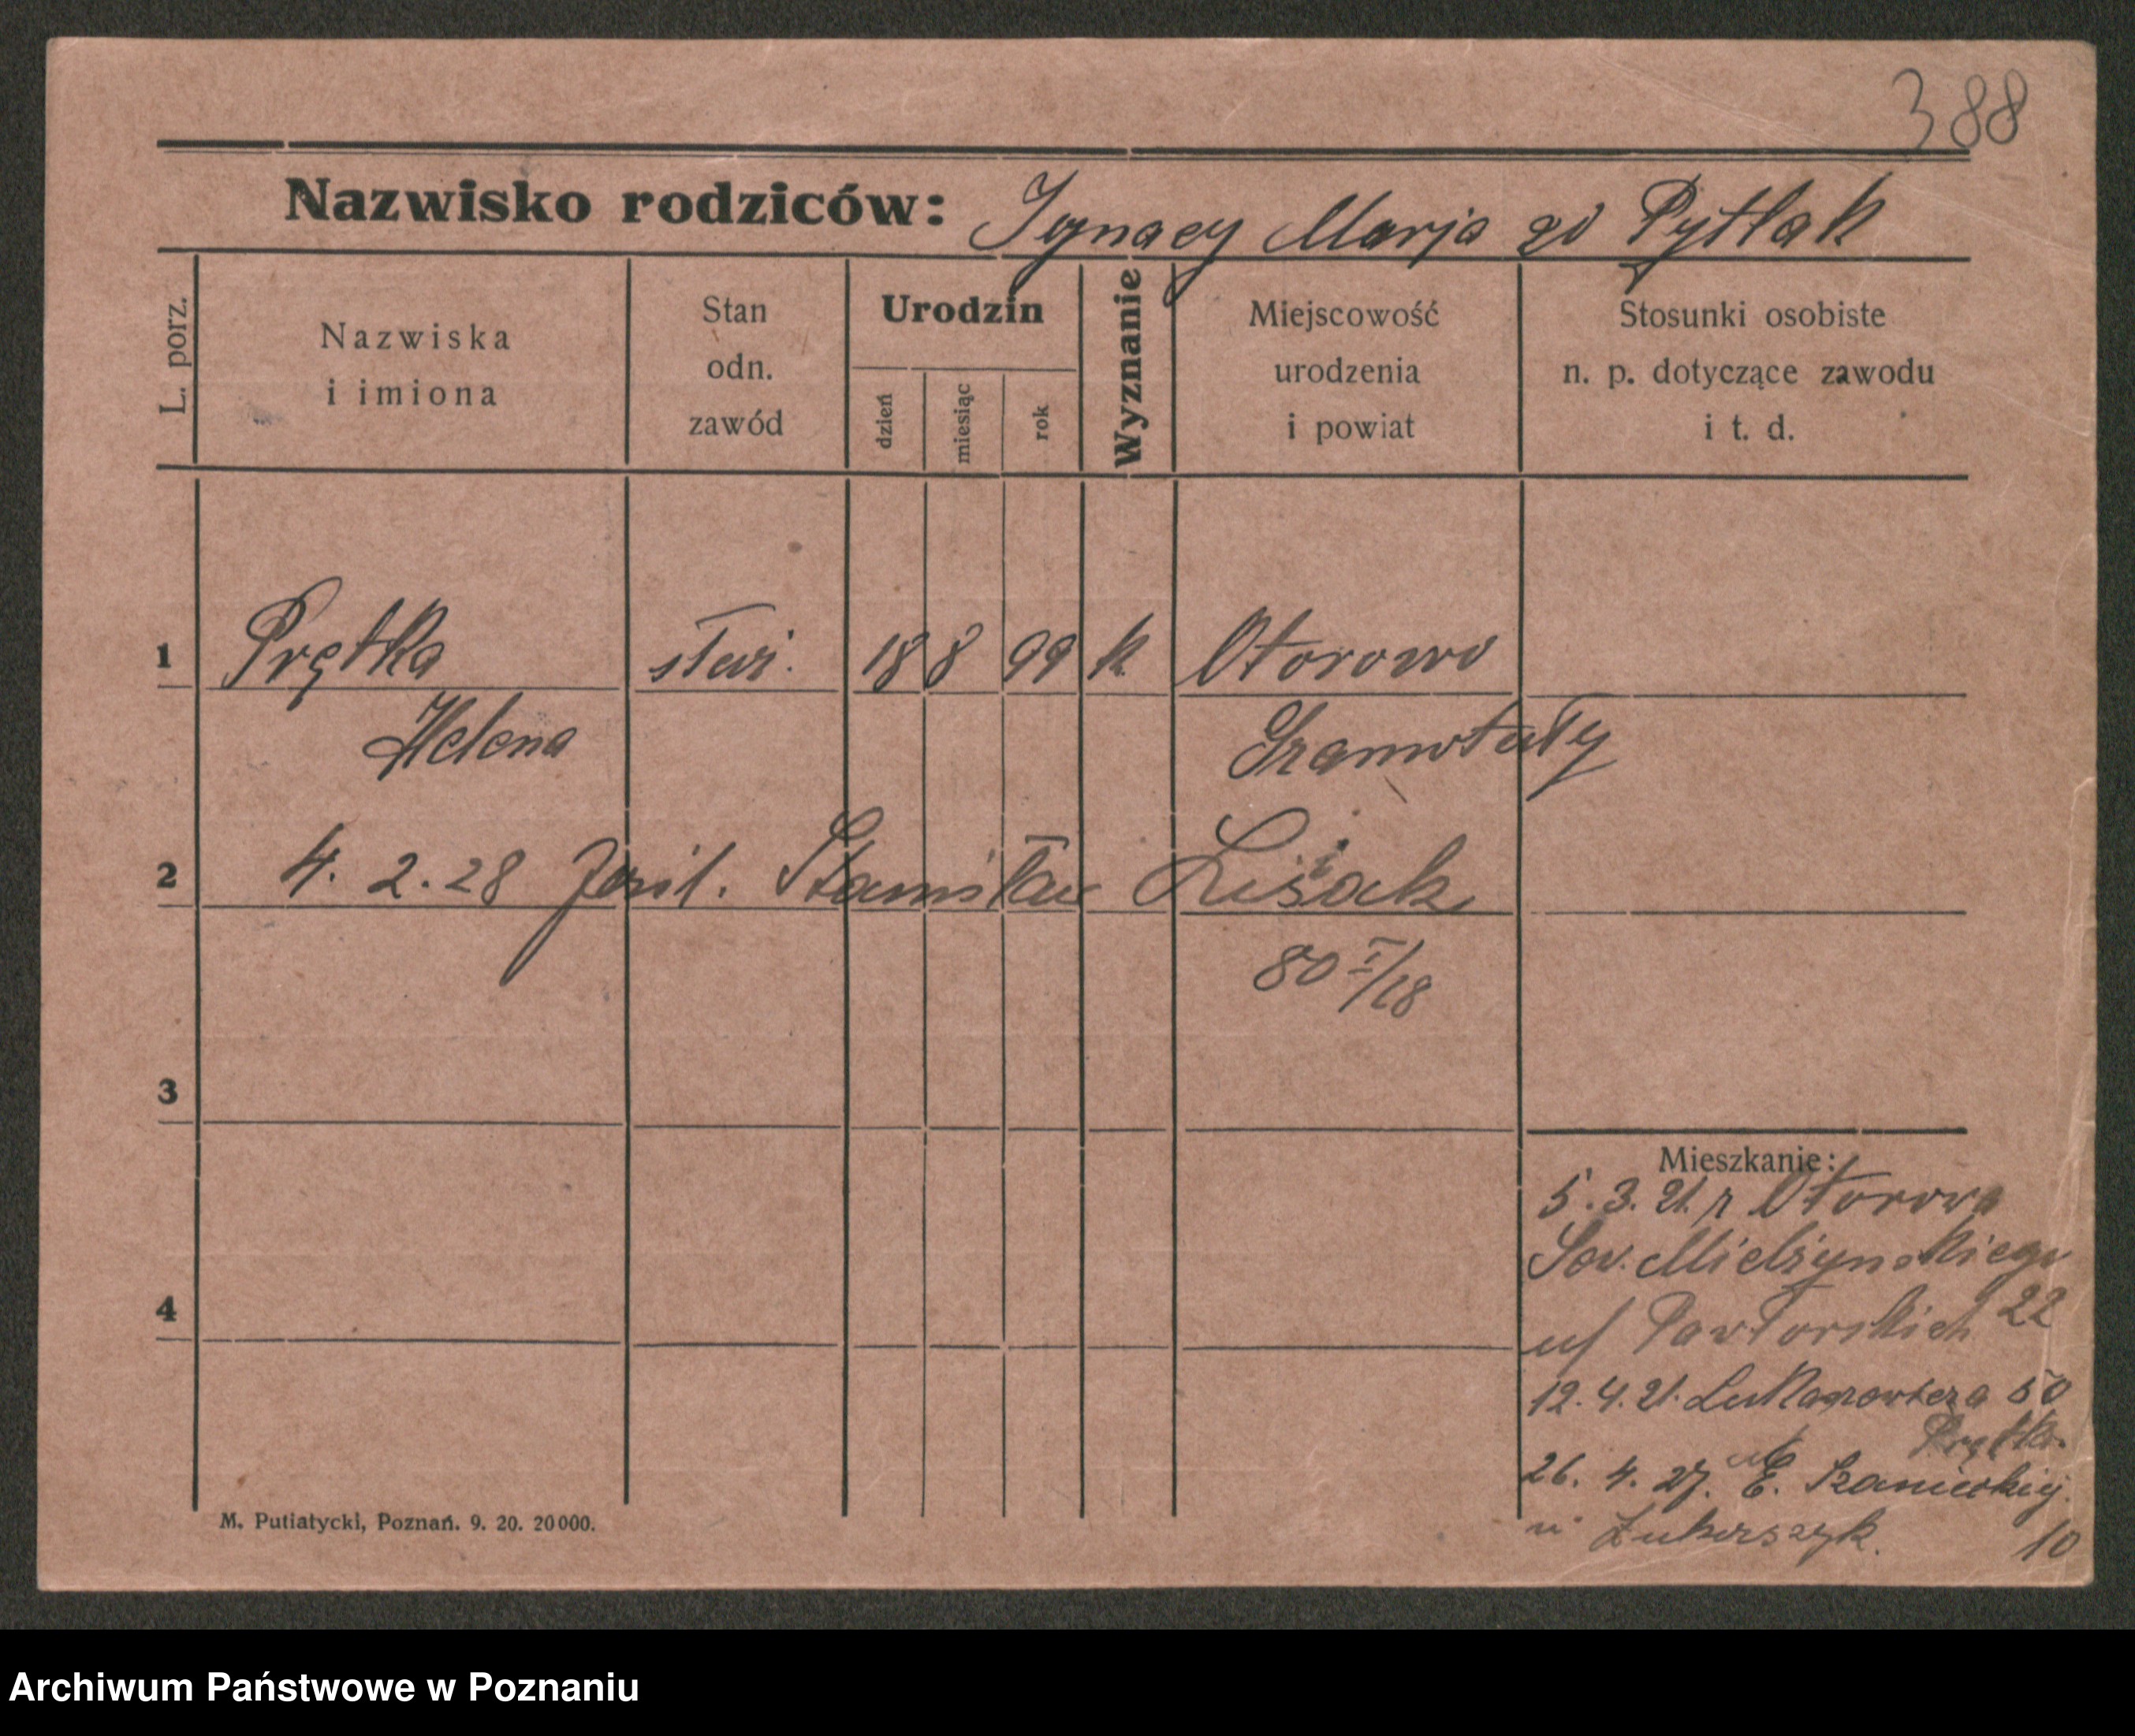 388
Nazwisko rodziców: Ignacy Marja zd Pytlak
L. porz.
Nazwiska
i imiona
Stan
odn.
zawód
Urodzin
dzień
miesiąc
rok
Wyznanie
Miejscowość
urodzenia
i powiat
Stosunki osobiste
n. p. dotyczące zawodu
i t. d.
1 Prętka służ. 18 8 99 k Otorowo
Helena Szamotuły
2 4. 2. 28 Stanisław Lisiak
80 I/18
3
Mieszkanie:
5. 3. 21. z Otorowa
Sew. Mielżynskiego
22
u/ Pawłorskich
12. 4. 21. Łukaszewicza 50
Prętka
26. 4. 27. E. Szanieckiej
u Łukaszyk. 10
4
M. Putiatycki, Poznań. 9. 20. 20000.
Archiwum Państwowe w Poznaniu